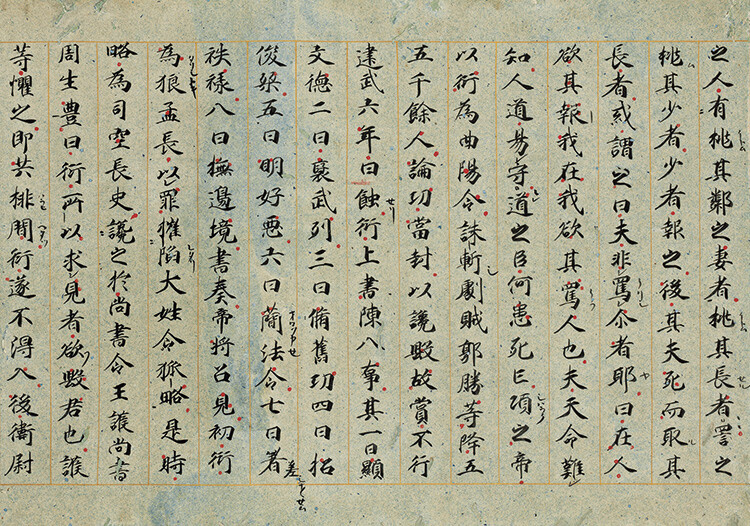 之人有桃其鄰之妻者桃其長者詈之
桃其少者少者報之後其夫死而取其
長者或謂之曰夫非罵尒者耶曰在人
欲其報我在我欲其罵人也夫天命難
知人道易守道之臣何患死亡頃之帝
以衍為曲陽令誅斬劇賊郭勝等降五
五千餘人論功當封以讒毀故賞不行
建武六年日蝕衍上書陳八事其一曰顯
文德二曰襃武列三曰脩舊功四曰招
俊桀五曰明好惡六曰蕳法令七曰著差
袟禄八曰撫邊境書奏帝將召見初衍
為狼孟長以罪摧陷大姓令狐略是時
略為司空長史讒之於尚書令王護尚書
周生豐曰衍所以求見者欲毀君也護
等懼之即共排間衍遂不得入後衛尉